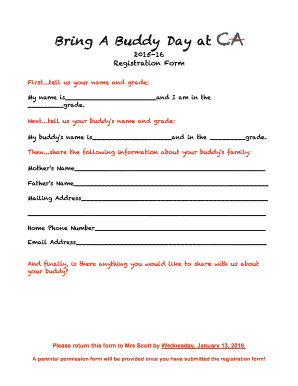 Bring A Buddy Day at CA
2015-16
Registration Form
First...tell us your name and grade:
My name is_________________________and I am in the
__________grade.
Next...tell us your buddy's name and grade:
My buddy's name is______________________and in the __________grade.
Then...share the following information about your buddy's family:
Mother's Name____________________________________________________
Father's Name____________________________________________________
Mailing Address__________________________________________________
_________________________________________________________________
Home Phone Number_______________________________________________
Email Address____________________________________________________
And finally, is there anything you would like to share with us about
your buddy?
Please return this form to Mrs Scott by Wednesday, January 13, 2016.
A parental permission form will be provided once you have submitted the registration form!